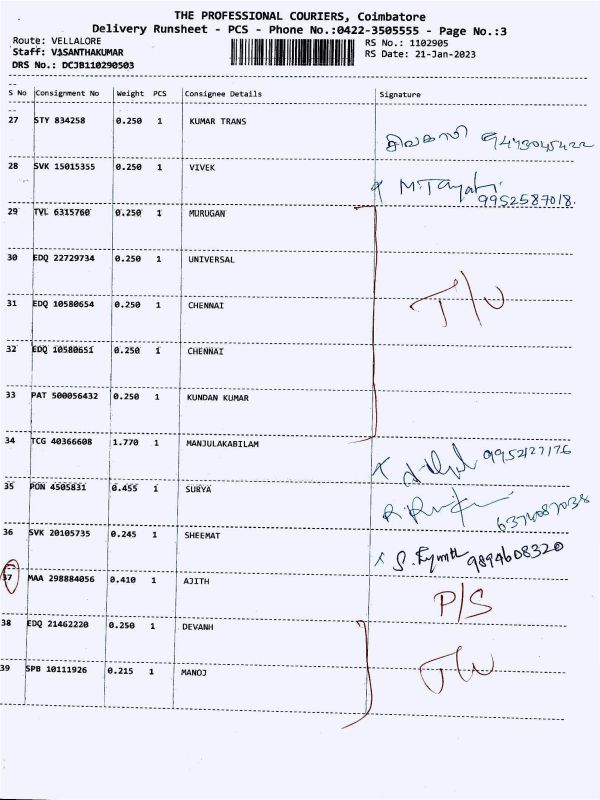 THE PROFESSIONAL COURIERS, Coimbatore
Delivery Runsheet - PCS - Phone No.:0422-3505555 - Page No.:3
Route: VELLALORE
RS No.: 1102905
Staff: VASANTHAKUMAR
RS Date: 21-Jan-2023
DRS No.: DCJB110290503
S No Consignment No Weight PCS Consignee Details Signature
27 STY 834258 0.250 1 KUMAR TRANS
சிவகாமி 9473045422
28 SVK 15015355 0.250 1 VIVEK
9952587018.
29 TVL 6315760 0.250 1 MURUGAN
30 EDQ 22729734 0.250 1 UNIVERSAL
31 EDQ 10580654 0.250 1 CHENNAI T/U
32 EDQ 10580651 0.250 1 CHENNAI
33 PAT 500056432 0.250 1 KUNDAN KUMAR
34 TCG 40366608 1.770 1 MANJULAKABILAM
9952127176
35 PON 4505831 0.455 1 SURYA
6374087038
36 SVK 20105735 0.245 1 SHEEMAT
9894608320
37 MAA 298884056 0.410 1 AJITH P/S
38 EDQ 21462220 0.250 1 DEVANH
39 SPB 10111926 0.215 1 MANOJ